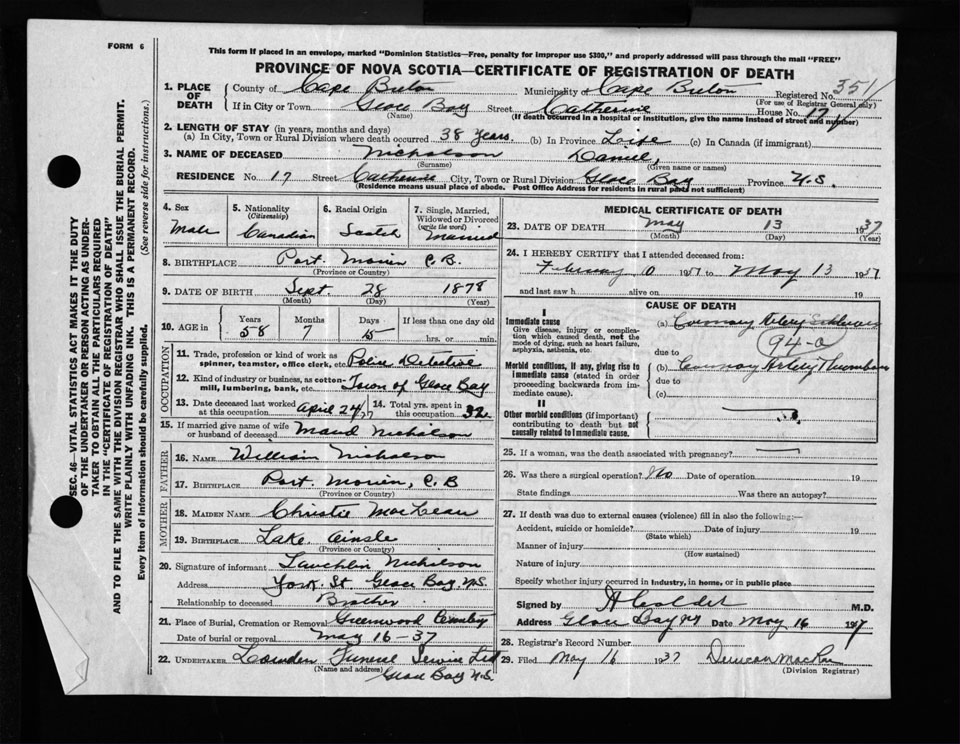 FORM 6
This form if placed in an envelope, marked "Dominion Statistics—Free, penalty for improper use $300," and properly addressed will pass through the mail "FREE"
PROVINCE OF NOVA SCOTIA—CERTIFICATE OF REGISTRATION OF DEATH
1. PLACE OF DEATH County of Cape Breton Municipality of Cape Breton Registered No. 351
(For use of Registrar General only)
If in City or Town Glace Bay Street Catherine House No. 17
(Name) (If death occurred in a hospital or institution, give the name instead of street and number)
2. LENGTH OF STAY (in years, months and days)
(a) In City, Town or Rural Division where death occurred 38 years. (b) In Province Life (c) In Canada (if immigrant)
3. NAME OF DECEASED Nicholson Daniel,
(Surname) (Given name or names)
RESIDENCE No. 17 Street Catherine City, Town or Rural Division Glace Bay Province N.S.
(Residence means usual place of abode. Post Office Address for residents in rural parts not sufficient)
4. Sex Male
5. Nationality (Citizenship) Canadian
6. Racial Origin Scotch
7. Single, Married, Widowed or Divorced (write the word) Married
8. BIRTHPLACE Port Morien C.B.
(Province or Country)
9. DATE OF BIRTH Sept. 28 1878
(Month) (Day) (Year)
10. AGE in Years 58 Months 7 Days 15 If less than one day old hrs. or min.
OCCUPATION
11. Trade, profession or kind of work as spinner, teamster, office clerk, etc. Police Detective
12. Kind of industry or business, as cotton-mill, lumbering, bank, etc. Town of Glace Bay
13. Date deceased last worked at this occupation April 24/37
14. Total yrs. spent in this occupation 32
15. If married give name of wife or husband of deceased Maud Nicholson
FATHER
16. NAME William Nicholson
17. BIRTHPLACE Port Morien, C.B
(Province or Country)
MOTHER
18. MAIDEN NAME Christie MacLean
19. BIRTHPLACE Lake Ainslie
(Province or Country)
20. Signature of informant Lauchlin Nicholson
Address York St Glace Bay, N.S.
Relationship to deceased Brother
21. Place of Burial, Cremation or Removal Greenwood Cemetery
Date of burial or removal May 16-37
22. UNDERTAKER Funeral Service Ltd
(Name and address) Glace Bay N.S.
MEDICAL CERTIFICATE OF DEATH
23. DATE OF DEATH May 13 1937
(Month) (Day) (Year)
24. I HEREBY CERTIFY that I attended deceased from:
February 1937 to May 13 1937
and last saw h alive on 19
CAUSE OF DEATH
I
Immediate cause
Give disease, injury or complication which caused death, not the mode of dying, such as heart failure, asphyxia, asthenia, etc.
(a) Coronary Artery Sclerosis
94-a
due to
Morbid conditions, if any, giving rise to immediate cause (stated in order proceeding backwards from immediate cause).
(b) Coronary Artery Thrombosis
due to
(c)
II
Other morbid conditions (if important) contributing to death but not causally related to immediate cause.
25. If a woman, was the death associated with pregnancy?
26. Was there a surgical operation? No Date of operation 19
State findings Was there an autopsy?
27. If death was due to external causes (violence) fill in also the following:—
Accident, suicide or homicide? Date of injury 19
(State which)
Manner of injury
(How sustained)
Nature of injury
Specify whether injury occurred in industry, in home, or in public place
Signed by M.D.
Address Glace Bay NS Date May 16 1937
28. Registrar's Record Number
29. Filed May 16 1937 Duncan MacRae
(Division Registrar)
SEC. 46—VITAL STATISTICS ACT MAKES IT THE DUTY
OF THE UNDERTAKER OR PERSON ACTING AS UNDERTAKER TO OBTAIN ALL THE PARTICULARS REQUIRED
IN THE "CERTIFICATE OF REGISTRATION OF DEATH"
AND TO FILE THE SAME WITH THE DIVISION REGISTRAR WHO SHALL ISSUE THE BURIAL PERMIT.
WRITE PLAINLY WITH UNFADING INK. THIS IS A PERMANENT RECORD.
Every item of information should be carefully supplied. (See reverse side for instructions.)